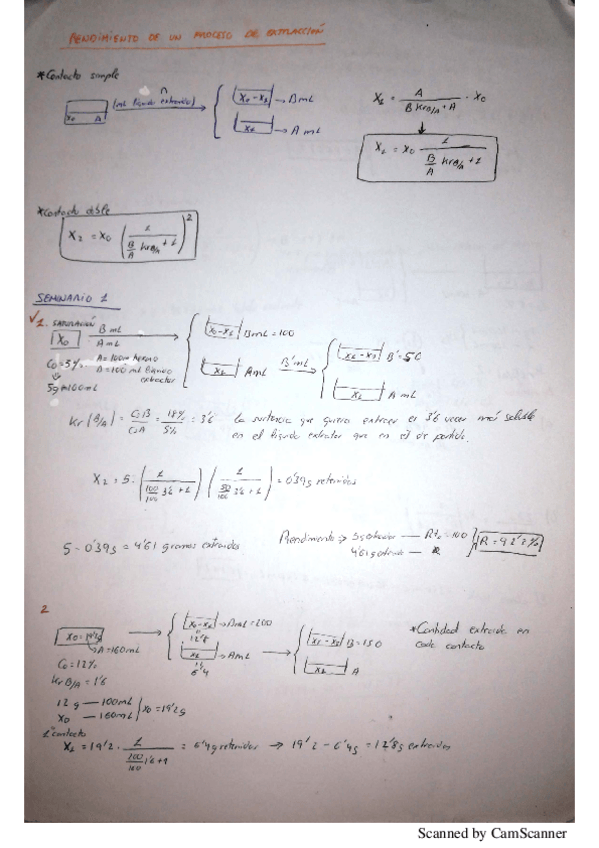 RENDIMIENTO DE UN PROCESO DE EXTRACCIÓN
*Contacto simple
n
(mL líquido extractor)
X0 A
X0 - X1 → B mL
X1 → A mL
X1 = A / (B Kr B/A + A) · X0
X1 = X0 1 / (B/A Kr B/A + 1)
*Contacto doble
X2 = X0 (1 / (B/A Kr B/A + 1))^2
SEMINARIO 1
√1. SATURACIÓN
X0
B mL
A mL
C0 = 5%
5g → 100mL
A = 100mL
B = 100 mL líquido extractor
X0 - X1 B mL = 100
X1 A mL
B' mL
X1 - X2 B' = 50
X2 A mL
Kr (B/A) = CsB / CsA = 18% / 5% = 3'6 La sustancia que quiero extraer es 3'6 veces más soluble
en el líquido extractor que en el de partida.
X2 = 5 · (1 / (100/100 3'6 + 1)) (1 / (50/100 3'6 + 1)) = 0'39g retenidos
5 - 0'39g = 4'61 gramos extraidos
Rendimiento → 5g — R% = 100
4'61g — R
R = 92'2%
2
X0 = 19'2g
A = 160mL
C0 = 12%
Kr B/A = 1'6
12 g — 100mL
X0 — 160mL
X0 = 19'2g
X0 - X1 → B mL = 200
12'8
X1 → A mL
6'4
X1 - X2 B = 150
X2 A
*Cantidad extraida en
cada contacto
1er contacto
X1 = 19'2 · 1 / (200/160 1'6 + 1) = 6'4g retenidos → 19'2 - 6'4g = 12'8g extraidos
Scanned by CamScanner